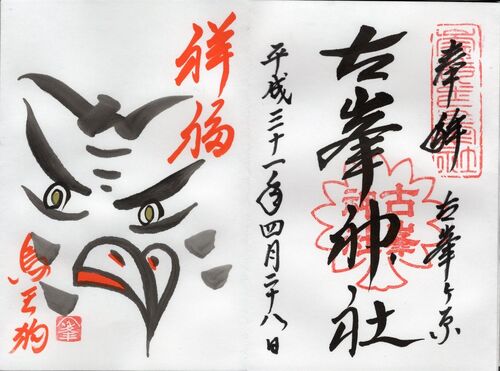 奉拝
古峯ヶ原
古峯神社
古峯
神社
平成三十一年四月二十八日
祥福
烏天狗
峯